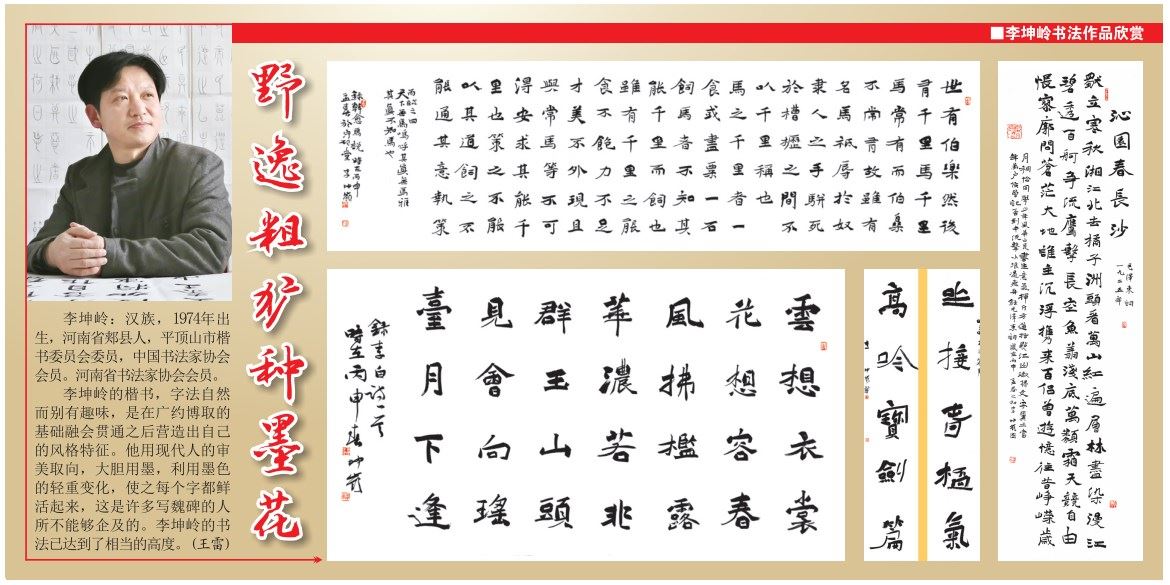 ■李坤岭书法作品欣赏
野逸粗犷种墨花
李坤岭：汉族，1974年出
生，河南省郏县人，平顶山市楷
书委员会委员，中国书法家协会
会员。河南省书法家协会会员。
李坤岭的楷书，字法自然
而别有趣味，是在广约博取的
基础融会贯通之后营造出自己
的风格特征。他用现代人的审
美取向，大胆用墨，利用墨色
的轻重变化，使之每个字都鲜
活起来，这是许多写魏碑的人
所不能够企及的。李坤岭的书
法已达到了相当的高度。(王雷)
世有伯樂然後
有千里馬千里
馬常有而伯樂
不常有故雖有
名馬祇辱於奴
隸人之手駢死
於槽櫪之間不
以千里稱也
馬之千里者一
食或盡粟一石
飼馬者不知其
能千里而飼也
雖有千里之能
食不飽力不足
才美不外現且
與常馬等不可
得安求其能千
里也策之不能
以其道飼之不
能通其意執策
而臨之曰
天下無馬嗚呼其真無馬耶
其真不知馬也
錄韓愈馬說時在丙申
雲想衣裳
花想容春
風拂檻露
華濃若非
群玉山頭
見會向瑤
臺月下逢
錄李白詩一首
時在丙申春坤嶺
高吟寶劍篇
沁園春長沙
毛澤東詞
一九二五年
獨立寒秋湘江北去橘子洲頭看萬山紅遍層林盡染漫江
碧透百舸爭流鷹擊長空魚翔淺底萬類霜天競自由
悵寥廓問蒼茫大地誰主沉浮攜來百侶曾遊憶往昔崢嶸歲
月稠恰同學少年風華正茂書生意氣揮斥方遒指點江山激揚文字糞土當
年萬戶侯曾記否到中流擊水浪遏飛舟